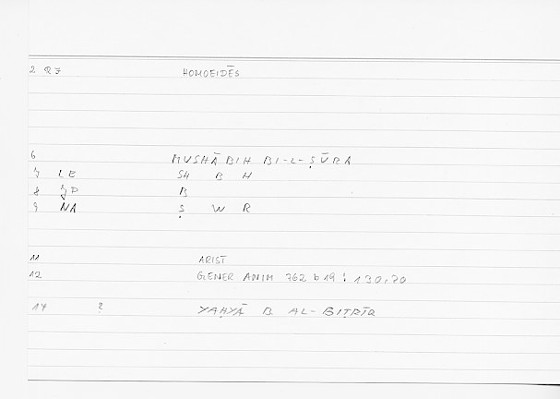 2 QZ HOMOEIDĒS
6 MUSHĀBIH BI-L-ṢŪRA
7 LE SH B H
8 JP B
9 NA Ṣ W R
11 ARIST
12 GENER ANIM 762 b 19 : 130,20
14 ? YAḤYĀ B AL-BIṬRĪQ